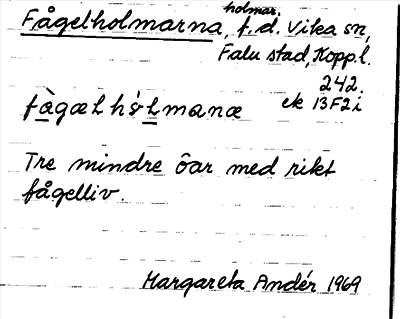 Fågelholmarna, holmar, f.d. Vika sn,
Falu stad, Kopp.l.
242.
ek 13F2i
fàgæL hɔ̀Lmanæ
Tre mindre öar med rikt
fågelliv.
Margareta Andér 1969